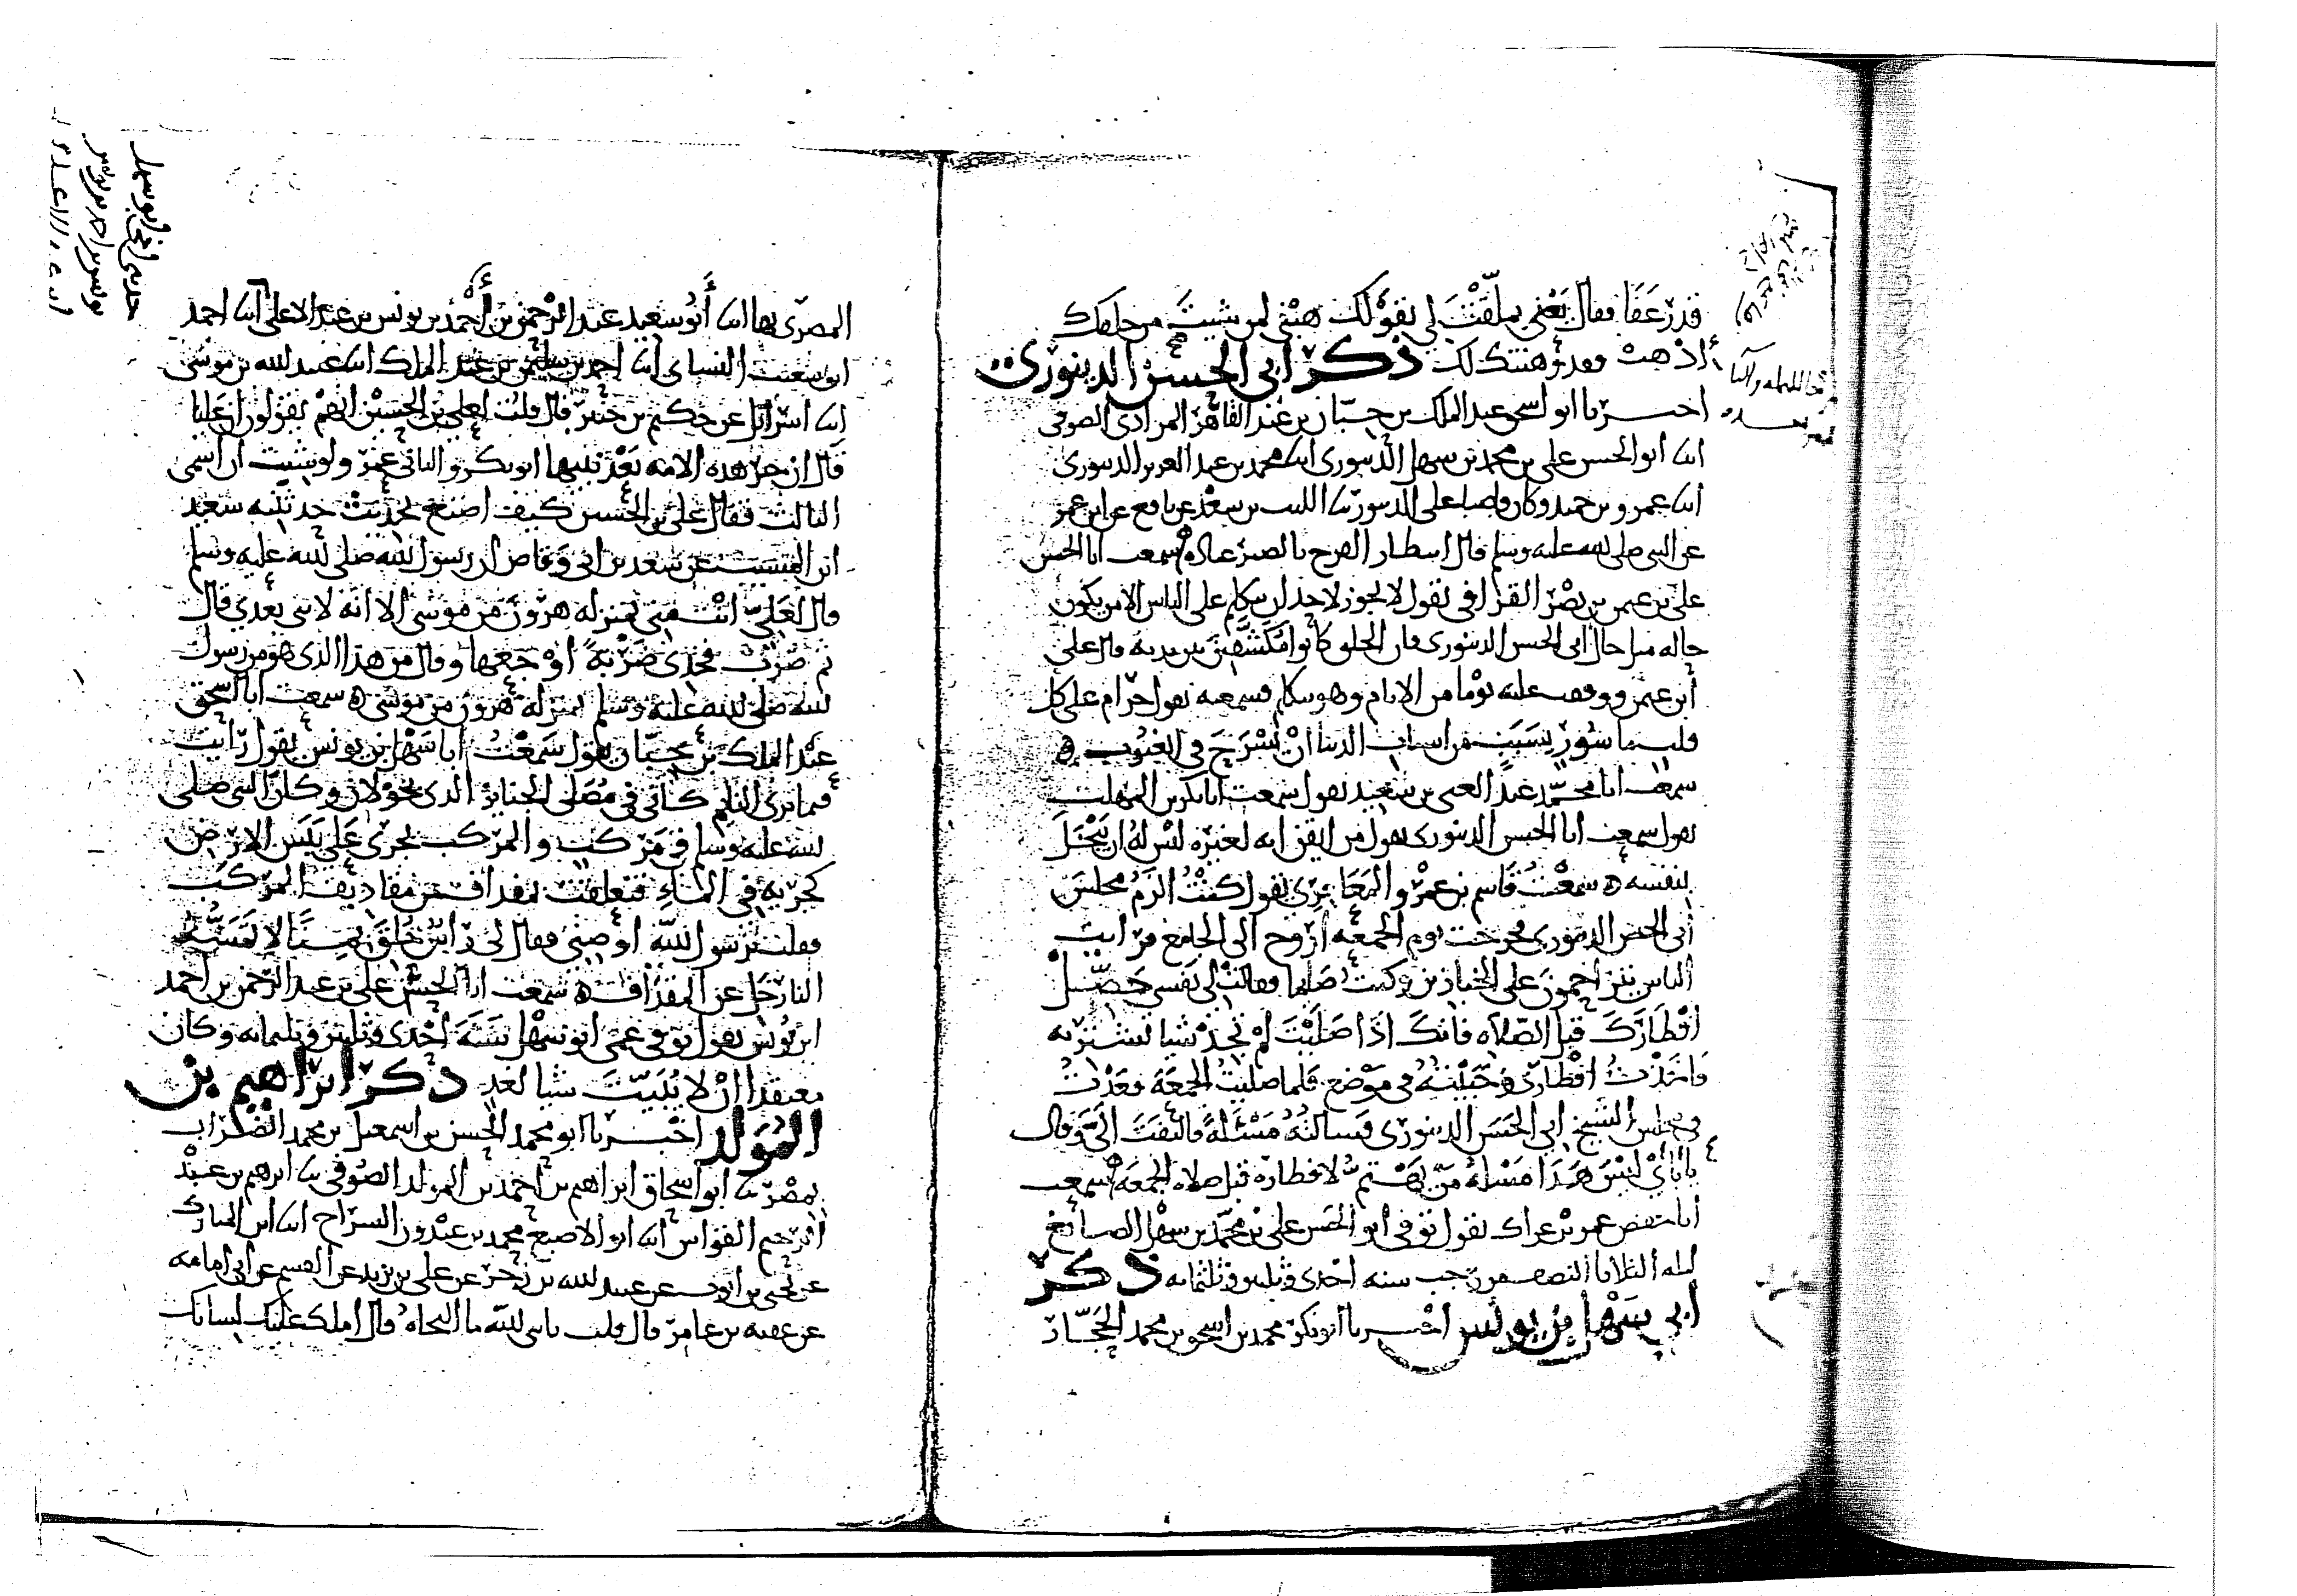 قدر عفا فقال يعني بملقت لي تقولك هبني لمن شيت من خلقك
أذهب فقد وهبتك لك ذكر ابي الحسن الدينوري
اخبرنا ابو اسحق عبد الملك بن حبان بن عبد القاهر المرادي الصوفي
انا ابو الحسن علي بن محمد بن سهل الدينوري انا محمد بن عبد العزيز الدينوري
انا عمرو بن حميد وكان قاضيا على الدينور نا الليث بن سعد عن نافع عن ابن عمر
عن النبي صلى الله عليه وسلم قال انتظار الفرج بالصبر عبادة سمعت ابا الحسن
علي بن عمر بن نصر القرافي يقول لا يجوز لاحد ان يتكلم على الناس الا من يكون
حاله مثل حال ابي الحسن الدينوري فان الخلق كانوا مكشفين بين يديه قال علي
ابن عمر ووقفت عليه يوما من الايام وهو يتكلم فسمعته يقول حرام على كل
قلب مأسور بسبب من اسباب الدنيا أن يسرح في الغيوب
سمعت ابا محمد عبد الغني بن سعيد يقول سمعت ابا بكر بن المهلب
يقول سمعت ابا الحسن الدينوري يقول من ايقن انه لغيره ليس له ان يبخل
بنفسه سمعت قاسم بن عمرو المعافري يقول كنت الزم مجلس
أبي الحسن الدينوري فخرجت يوم الجمعه اروح الى الجامع فرايت
الناس يتزاحمون على الخبازين وكنت صايما فقالت لي نفسي حصل
افطارك قبل الصلاه فانك اذا صليت لم تجد شيا تشتريه
فاخذت افطاري وخبيته في موضع فلما صليت الجمعه قعدت
في مجلس الشيخ ابي الحسن الدينوري فسالته مسئلة فالتفت الي وقال
يا بابي ليس هذا مسلة من يهتم لافطاره قبل صلاه الجمعه سمعت
أبا حفص عمر بن عراك يقول توفي ابو الحسن علي بن محمد بن سهل الصايغ
ليله الثلاثا النصف من رجب سنه احدى وثلثين وثلثمايه ذكر
ابي سهل بن يونس اخبرنا ابو بكر محمد بن اسحق بن محمد الحجار
المصري بها انا أبو سعيد عبد الرحمن بن أحمد بن يونس بن عبد الاعلى انا احمد
ابن شعيب النساي انا احمد بن سليمن بن عبد الملك انا عبيد الله بن موسى
انا اسرائل عن حكيم بن جبير قال قلت لعلي بن الحسين انهم يقولون ان عليا
قال ان خير هذه الامه بعد نبيها ابو بكر والثاني عمر ولو شيت ان اسمي
الثالث فقال علي بن الحسين كيف اصنع بحديث حدثنيه سعيد
ابن المسيب عن سعد بن ابي وقاص ان رسول الله صلى الله عليه وسلم
قال لعلي انت مني بمنزله هرون من موسى الا انه لا نبي بعدي قال
ثم ضرب فخذي ضربة اوجعها وقال من هذا الذي هو من رسول
الله صلى الله عليه وسلم بمنزله هرون من موسى سمعت ابا اسحق
عبد الملك بن حبان يقول سمعت ابا سهل بن يونس يقول رايت
فيما يرى النايم كاني في مصلى الجنايز الذي بخولان وكان النبي صلى
الله عليه وسلم في مركب والمركب يجري على يبس الارض
كجريه في الماء فتعلقت بمقداف من مقاديف المركب
فقلت يرسول الله أوصني فقال لي راس حلق يميتا لا تمسه
النار خل عن المقداف سمعت ابا الحسن علي بن عبد الرحمن بن احمد
ابن يونس يقول توفي عمي ابو سهل سنة احدى وثلثين وثلثمايه وكان
معتقدا ان لا يبيت شيا لغد ذكر ابراهيم بن
المولد اخبرنا ابو محمد الحسن بن اسمعيل بن محمد الضراب
بمصر نا ابو اسحاق ابراهيم بن احمد بن المولد الصوفي نا ابرهيم بن عبد
الرحيم القواس انا ابو الاصبع محمد بن عبدون السراج انا ابن المبارك
عن يحيى بن ايوب عن عبيد الله بن زحر عن علي بن يزيد عن القسم عن ابي امامه
عن عقبه بن عامر قال قلت يا نبي الله ما النجاه قال املك عليك لسانك
حدثني اخي ابو سهل
يونس بن احمد بن يونس